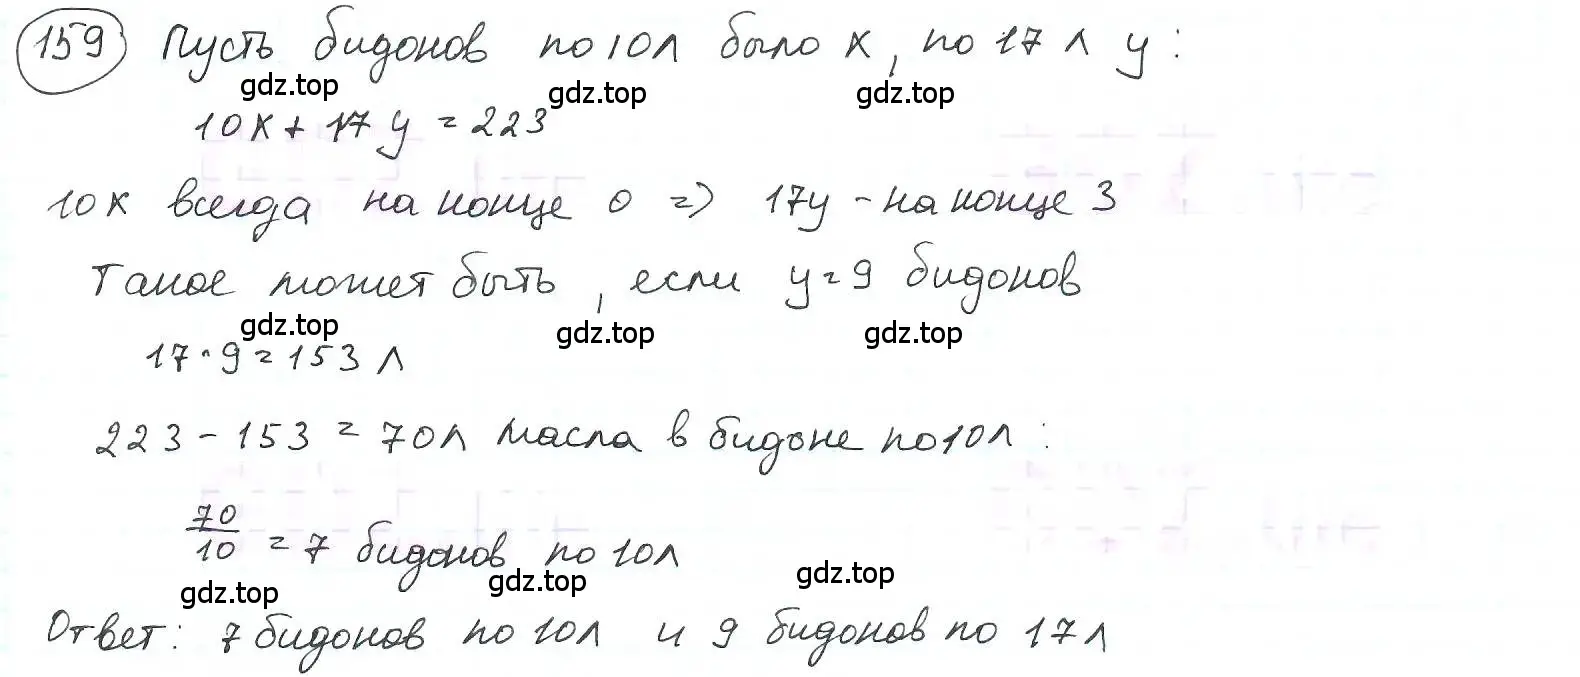 159 Пусть бидонов по 10л было x, по 17 л y:
gdz.top gdz.top gdz.top
10x + 17y = 223
10x всегда на конце 0 => 17y - на конце 3
Такое может быть, если y = 9 бидонов
gdz.top gdz.top gdz.top
17 · 9 = 153 л
223 - 153 = 70л масла в бидоне по 10л:
70/10 = 7 бидонов по 10л
gdz.top gdz.top gdz.top
Ответ: 7 бидонов по 10л и 9 бидонов по 17л